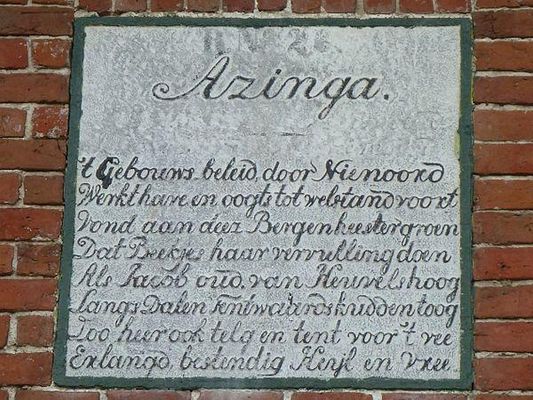 Azinga.
't Gebouws beleid door Nienoord
Werkt have en oogts tot welstand voort
Vond aan deez Bergen heester groen
Dat Beekjes haar vervulling doen
Als Jacob oud van Heuvels hoog
Langs Dalen kudden toog
Zoo hier ook telg en tent voor 't vee
Erlangd bestendig Heyl en Vree